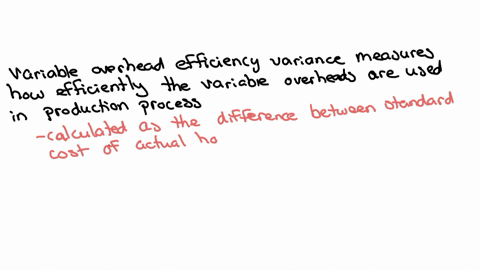 Variable overhead efficiency variance measures
how efficiently the variable overheads are used
in production process
-calculated as the difference between standard
cost of actual ho